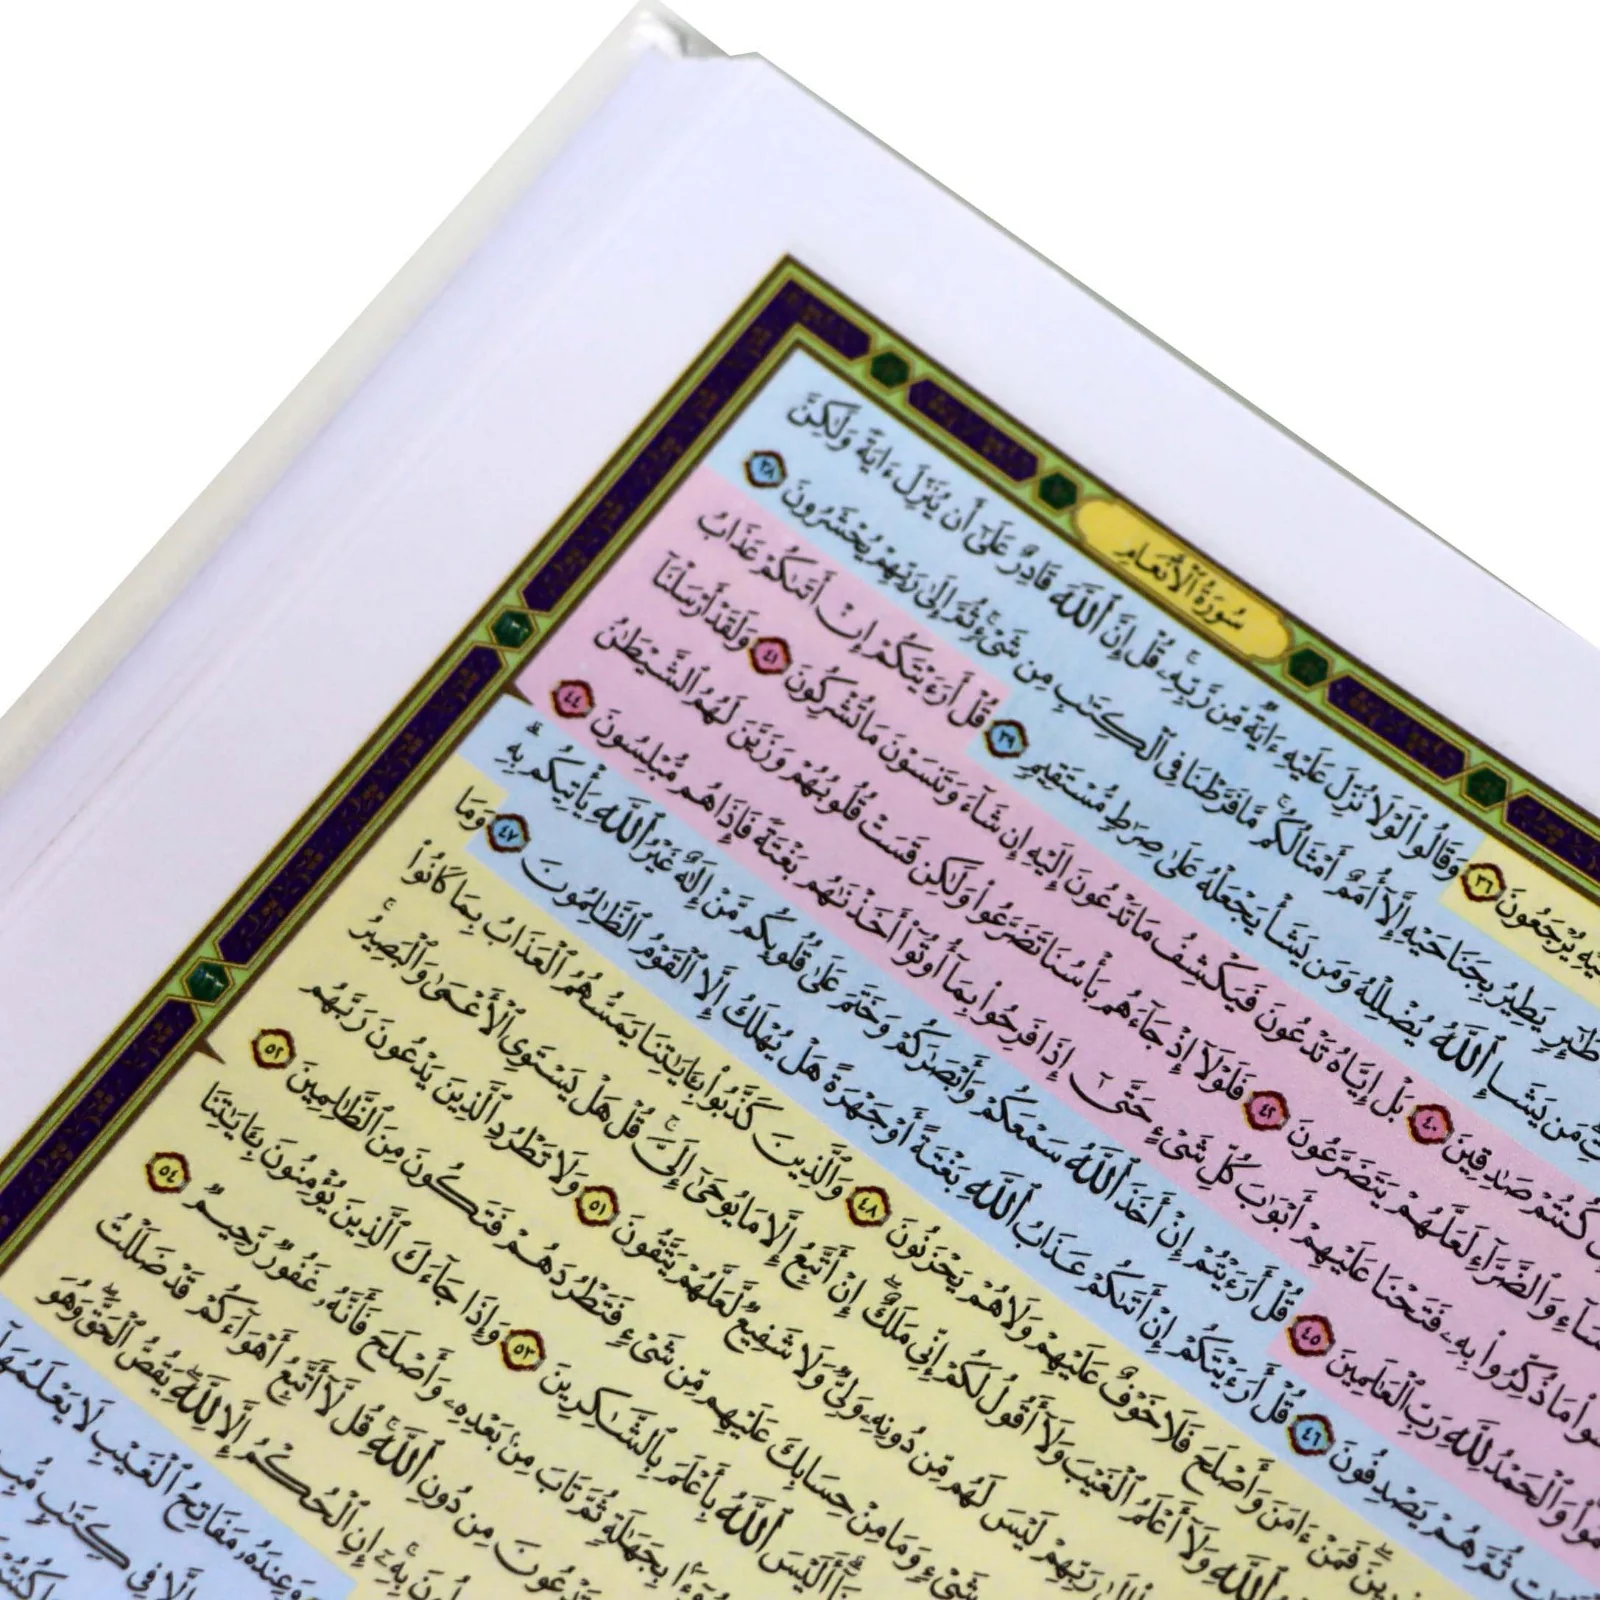 سُورَةُ ٱلْأَنْعَامِ
يُرْجَعُونَ ٣٦ وَقَالُوا۟ لَوْلَا نُزِّلَ عَلَيْهِ ءَايَةٌ مِّن رَّبِّهِۦ ۚ قُلْ إِنَّ ٱللَّهَ قَادِرٌ عَلَىٰٓ أَن يُنَزِّلَ ءَايَةً وَلَـٰكِنَّ
طَـٰٓئِرٍ يَطِيرُ بِجَنَاحَيْهِ إِلَّآ أُمَمٌ أَمْثَالُكُم ۚ مَّا فَرَّطْنَا فِى ٱلْكِتَـٰبِ مِن شَىْءٍ ۚ ثُمَّ إِلَىٰ رَبِّهِمْ يُحْشَرُونَ ٣٨
مَن يَشَإِ ٱللَّهُ يُضْلِلْهُ وَمَن يَشَأْ يَجْعَلْهُ عَلَىٰ صِرَٰطٍ مُّسْتَقِيمٍ ٣٩ قُلْ أَرَءَيْتَكُمْ إِنْ أَتَىٰكُمْ عَذَابُ
كُنتُمْ صَـٰدِقِينَ ٤٠ بَلْ إِيَّاهُ تَدْعُونَ فَيَكْشِفُ مَا تَدْعُونَ إِلَيْهِ إِن شَآءَ وَتَنسَوْنَ مَا تُشْرِكُونَ ٤١ وَلَقَدْ أَرْسَلْنَآ
وَٱلضَّرَّآءِ لَعَلَّهُمْ يَتَضَرَّعُونَ ٤٢ فَلَوْلَآ إِذْ جَآءَهُم بَأْسُنَا تَضَرَّعُوا۟ وَلَـٰكِن قَسَتْ قُلُوبُهُمْ وَزَيَّنَ لَهُمُ ٱلشَّيْطَـٰنُ
مَا ذُكِّرُوا۟ بِهِۦ فَتَحْنَا عَلَيْهِمْ أَبْوَٰبَ كُلِّ شَىْءٍ حَتَّىٰٓ إِذَا فَرِحُوا۟ بِمَآ أُوتُوٓا۟ أَخَذْنَـٰهُم بَغْتَةً فَإِذَا هُم مُّبْلِسُونَ ٤٤
وَٱلْحَمْدُ لِلَّهِ رَبِّ ٱلْعَـٰلَمِينَ ٤٥ قُلْ أَرَءَيْتُمْ إِنْ أَخَذَ ٱللَّهُ سَمْعَكُمْ وَأَبْصَـٰرَكُمْ وَخَتَمَ عَلَىٰ قُلُوبِكُم مَّنْ إِلَـٰهٌ غَيْرُ ٱللَّهِ يَأْتِيكُم بِهِ ۗ
ثُمَّ هُمْ يَصْدِفُونَ ٤٦ قُلْ أَرَءَيْتَكُمْ إِنْ أَتَىٰكُمْ عَذَابُ ٱللَّهِ بَغْتَةً أَوْ جَهْرَةً هَلْ يُهْلَكُ إِلَّا ٱلْقَوْمُ ٱلظَّـٰلِمُونَ ٤٧ وَمَا
فَمَنْ ءَامَنَ وَأَصْلَحَ فَلَا خَوْفٌ عَلَيْهِمْ وَلَا هُمْ يَحْزَنُونَ ٤٨ وَٱلَّذِينَ كَذَّبُوا۟ بِـَٔايَـٰتِنَا يَمَسُّهُمُ ٱلْعَذَابُ بِمَا كَانُوا۟
ٱللَّهِ وَلَآ أَعْلَمُ ٱلْغَيْبَ وَلَآ أَقُولُ لَكُمْ إِنِّى مَلَكٌ ۖ إِنْ أَتَّبِعُ إِلَّا مَا يُوحَىٰٓ إِلَىَّ ۚ قُلْ هَلْ يَسْتَوِى ٱلْأَعْمَىٰ وَٱلْبَصِيرُ ۚ
رَبِّهِمْ لَيْسَ لَهُم مِّن دُونِهِۦ وَلِىٌّ وَلَا شَفِيعٌ لَّعَلَّهُمْ يَتَّقُونَ ٥١ وَلَا تَطْرُدِ ٱلَّذِينَ يَدْعُونَ رَبَّهُم
شَىْءٍ وَمَا مِنْ حِسَابِكَ عَلَيْهِم مِّن شَىْءٍ فَتَطْرُدَهُمْ فَتَكُونَ مِنَ ٱلظَّـٰلِمِينَ ٥٢
أَلَيْسَ ٱللَّهُ بِأَعْلَمَ بِٱلشَّـٰكِرِينَ ٥٣ وَإِذَا جَآءَكَ ٱلَّذِينَ يُؤْمِنُونَ بِـَٔايَـٰتِنَا
بِجَهَـٰلَةٍ ثُمَّ تَابَ مِنۢ بَعْدِهِۦ وَأَصْلَحَ فَأَنَّهُۥ غَفُورٌ رَّحِيمٌ ٥٤
تَدْعُونَ مِن دُونِ ٱللَّهِ ۚ قُل لَّآ أَتَّبِعُ أَهْوَآءَكُمْ ۙ قَدْ ضَلَلْتُ
بِهِۦٓ ۚ إِنِ ٱلْحُكْمُ إِلَّا لِلَّهِ ۖ يَقُصُّ ٱلْحَقَّ ۖ وَهُوَ
وَعِندَهُۥ مَفَاتِحُ ٱلْغَيْبِ لَا يَعْلَمُهَآ
إِلَّا فِى كِتَـٰبٍ